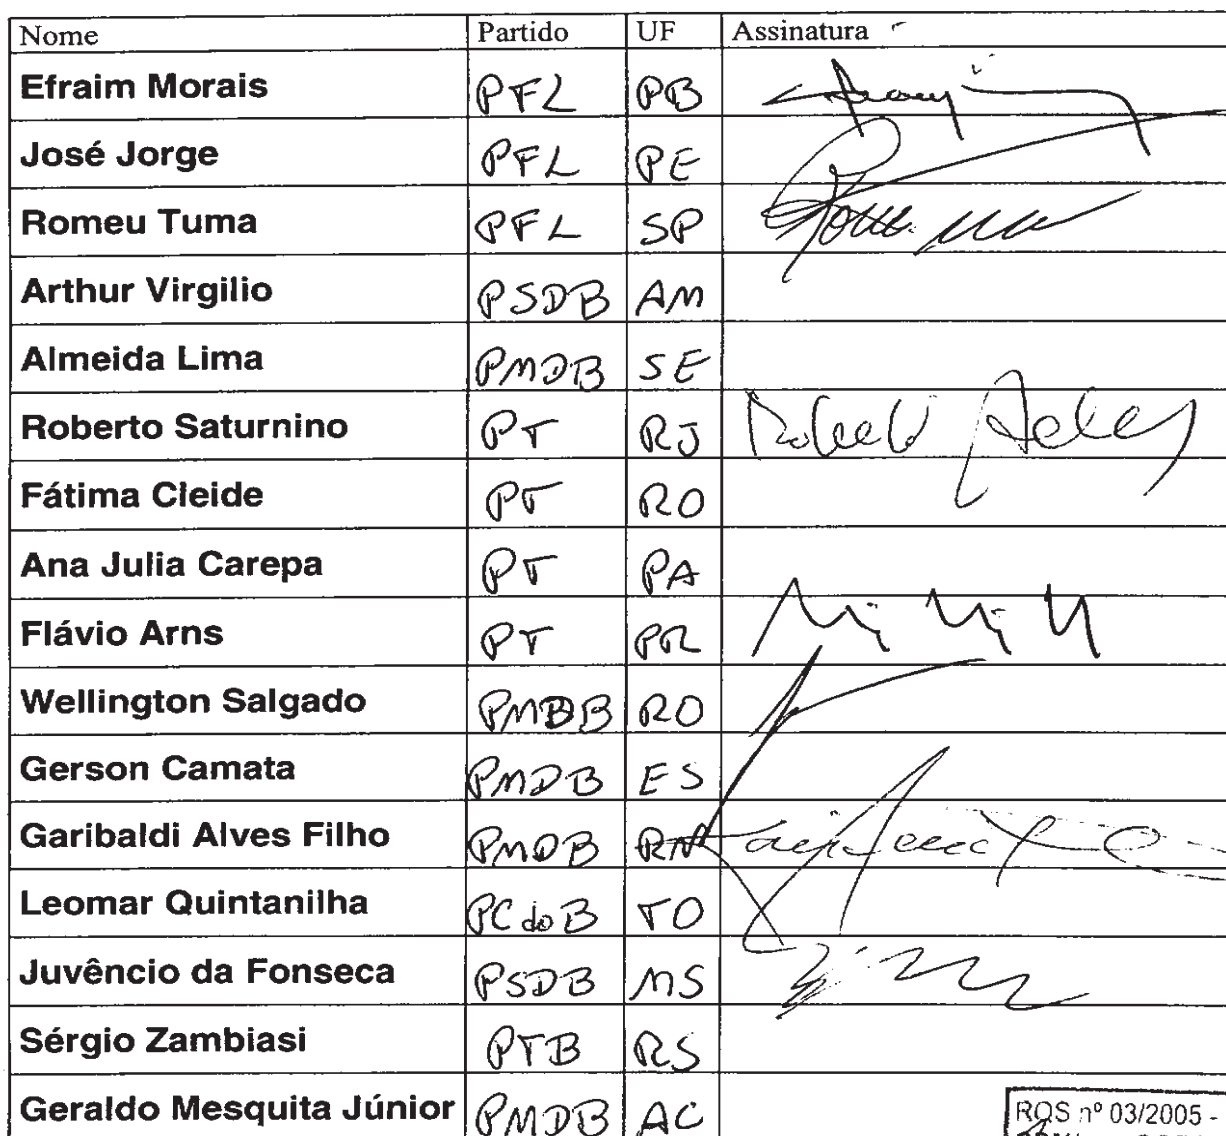 Nome Partido UF Assinatura
Efraim Morais PFL PB
José Jorge PFL PE
Romeu Tuma PFL SP
Arthur Virgilio PSDB AM
Almeida Lima PMDB SE
Roberto Saturnino PT RJ
Fátima Cleide PT RO
Ana Julia Carepa PT PA
Flávio Arns PT PR
Wellington Salgado PMDB RO
Gerson Camata PMDB ES
Garibaldi Alves Filho PMDB RN
Leomar Quintanilha PC do B TO
Juvêncio da Fonseca PSDB MS
Sérgio Zambiasi PTB RS
Geraldo Mesquita Júnior PMDB AC
RQS nº 03/2005 -